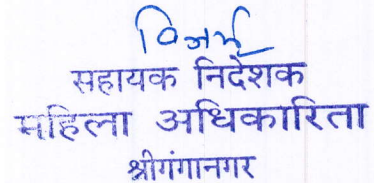 सहायक निर्देशक
महिला अधिकारिता
श्रीगंगानगर